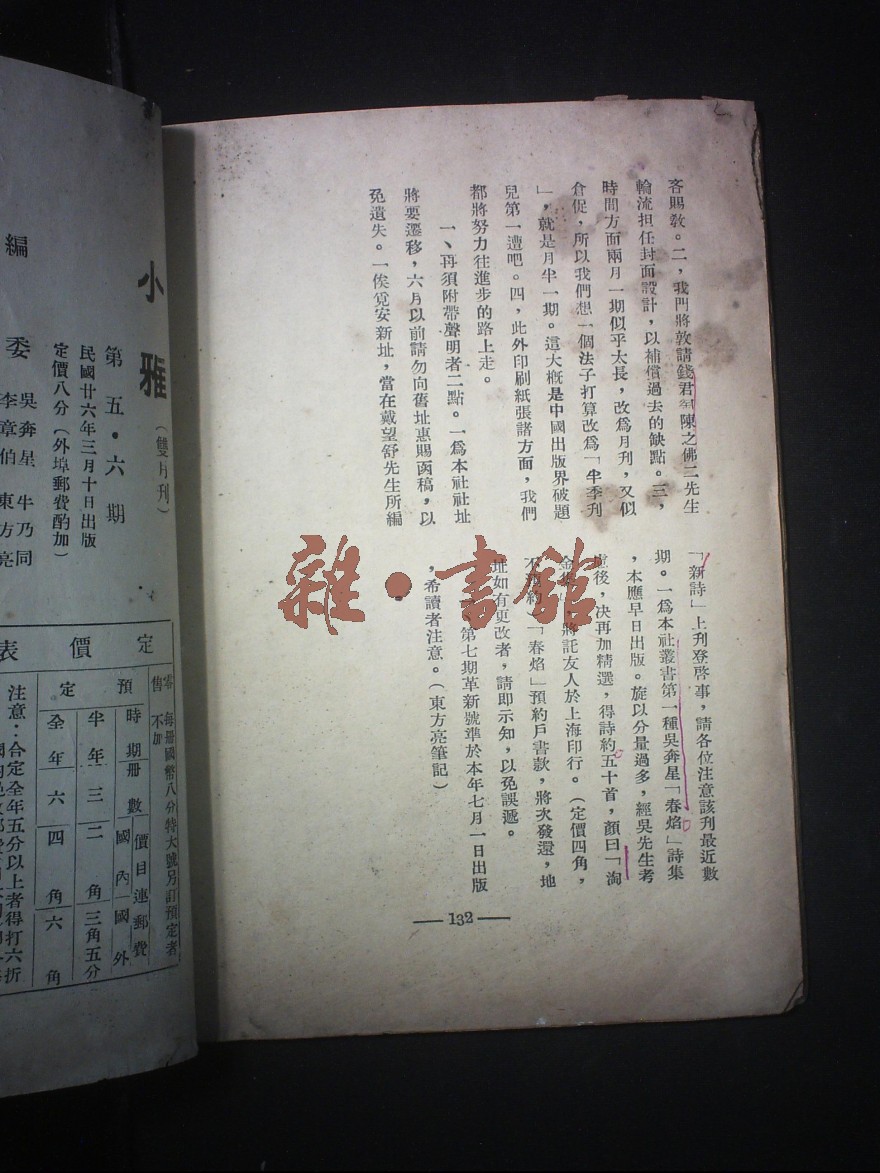 客賜教。二，我門將敦請錢君匋陳之佛二先生
輪流担任封面設計，以補償過去的缺點。三，
時間方面兩月一期似乎太長，改爲月刊，又似
倉促，所以我們想一個法子打算改爲「半季刊
」，就是月半一期。這大槪是中國出版界破題
兒第一遭吧。四，此外印刷紙張諸方面，我們
都將努力往進步的路上走。
一、再須附帶聲明者二點。一爲本社社址
將要遷移，六月以前請勿向舊址惠賜函稿，以
免遺失。一俟覓妥新址，當在戴望舒先生所編
「新詩」上刋登啓事，請各位注意該刋最近數
期。一爲本社叢書第一種吳奔星「春焰」詩集
，本應早日出版。旋以分量過多，經吳先生考
慮後，决再加精選，得詩約五十首，顏曰「淘
金 ，將託友人於上海印行。（定價四角，
不 約）「春焰」預約戶書款，將次發還，地
址如有更改者，請即示知，以免誤遞。
第七期革新號準於本年七月一日出版
，希讀者注意。（東方亮筆記）
—132—
小雅（雙月刊）
第五・六期
民國廿六年三月十日出版
定價八分（外埠郵費酌加）
編委
吳奔星 牛乃同
李章伯 東方亮
定價表
零售 每冊國幣八分特大號另訂預定者不加
預定
時期 冊數 價目連郵費
國內 國外
半年 三 二角 三角五分
全年 六 四角 六角
注意：合定全年五分以上者得打六折
雜・書館